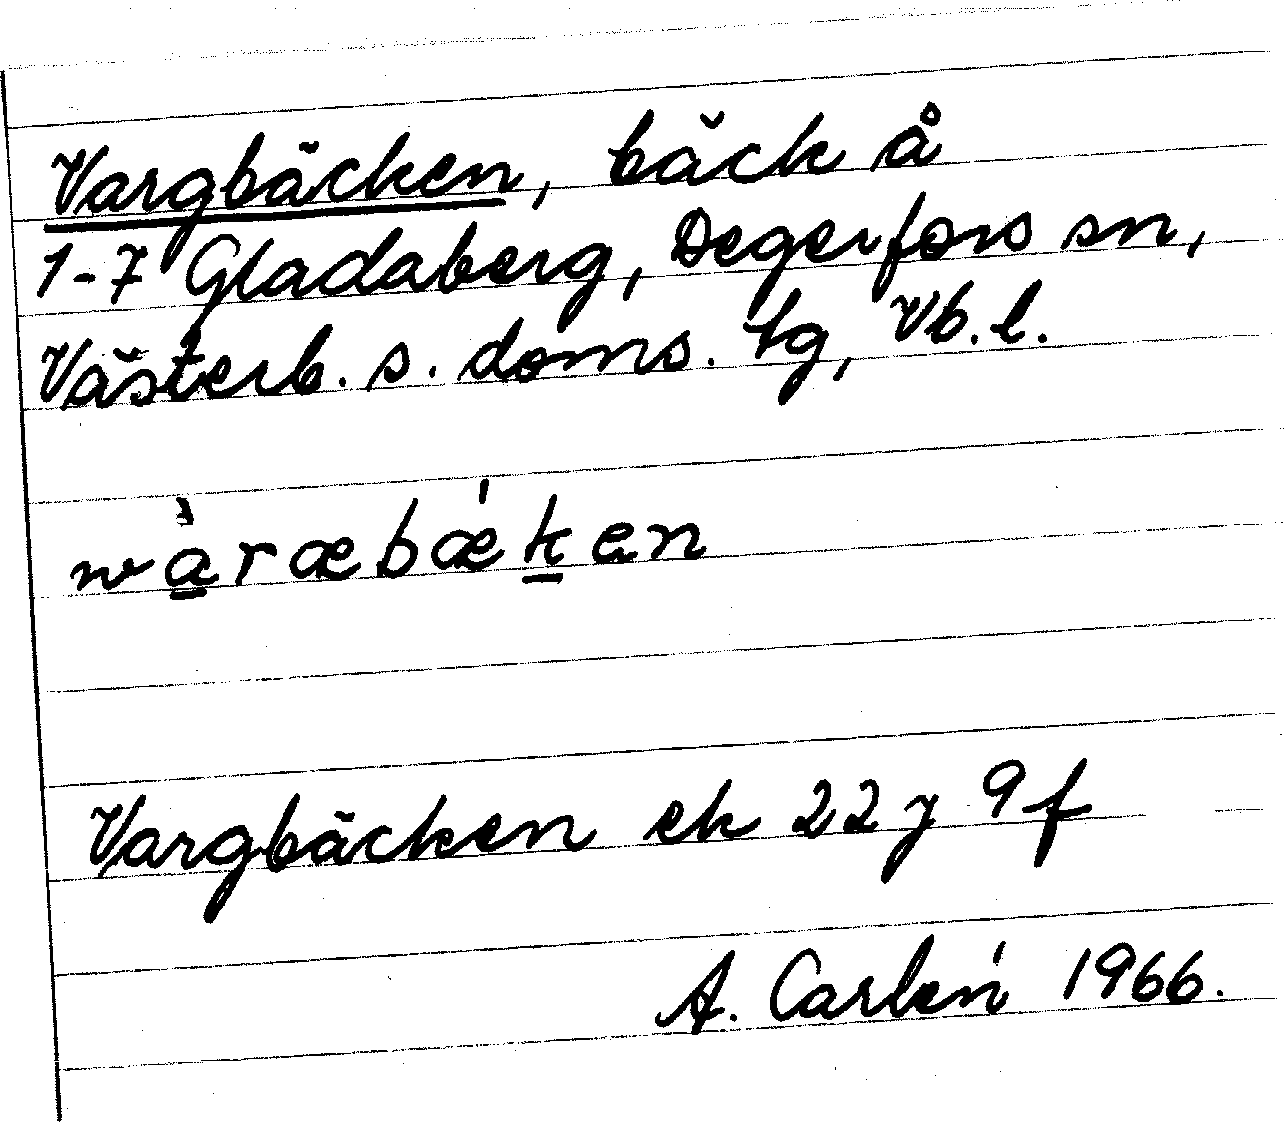 Vargbäcken, bäck å
1-7 Gladaberg, Degerfors sn,
Västerb. s. doms. tg, Vb. l.
wàræbǽken
Vargbäcken ek 22 J 9 f
A. Carlén 1966.